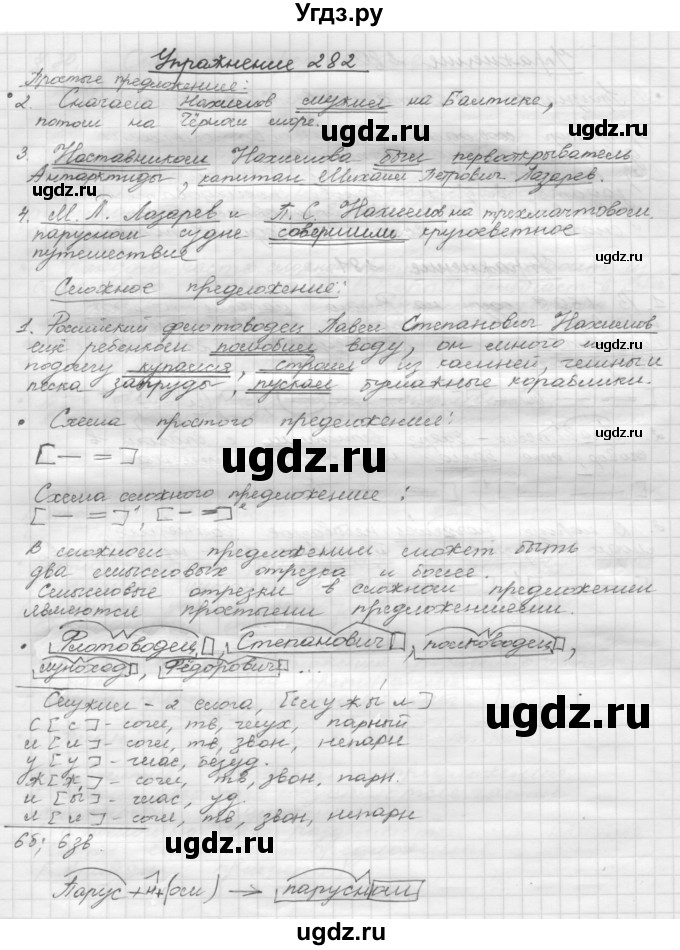 Угдз.ру
Упражнение 282
Простые предложение:
2. Сначала Нахимов служил на Балтике,
потом на Чёрном море.
ugdz.ru
3. Наставником Нахимова был первооткрыватель
Антарктиды, капитан Михаил Петрович Лазарев.
4. М. П. Лазарев и П. С. Нахимов на трехмачтовом
парусном судне совершили кругосветное
путешествия
Сложное предложение:
1. Российский флотоводец Павел Степанович Нахимов
ещё ребенком полюбил воду, он много и
подолгу купался, строил из камней, глины и
песка запруды, пускал бумажные кораблики.
• Схема простого предложение:
[— =]
Схема сложного предложение:
[— =]¹, [— =]²
В сложном предложении может быть
два смысловых отрезка и более.
Смысловые отрезки в сложном предложении
являются простыми предложениями.
• Флотоводец, Степанович, полководец,
луноход, Фёдорович ...
Служил - 2 слога, [служы́л]
с [с] - согл, тв, глух, парный
л [л] - согл, тв, звон, непарн
у [у] - глас, безуд.
ж [ж] - согл, тв, звон, парн.
и [ы́] - глас, уд.
л [л] - согл, тв, звон, непарн
6б; 6зв.
Парус + н + (ом) → парусном
ugdz.ru
ugdz.ru
ugdz.ru
ugdz.ru
ugdz.ru
ugdz.ru
ugdz.ru
ugdz.ru
ugdz.ru
ugdz.ru
ugdz.ru
ugdz.ru